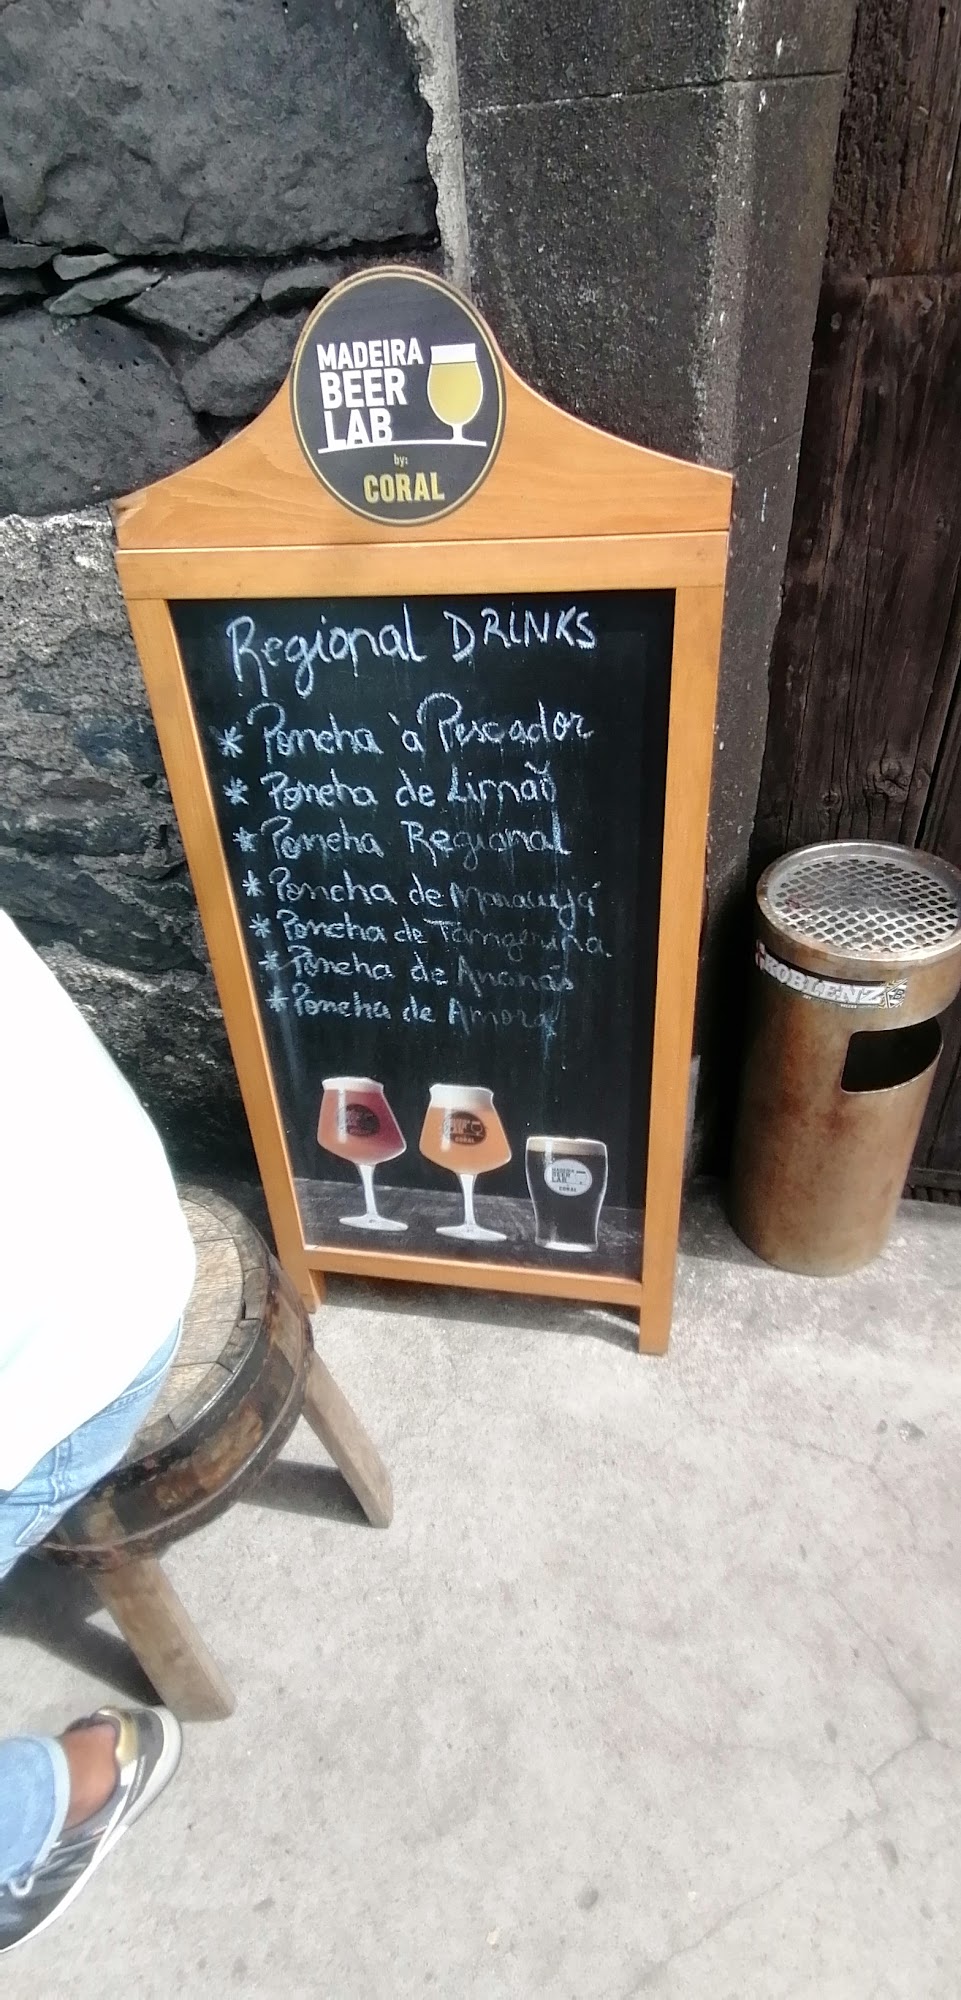 MADEIRA
BEER
LAB
by:
CORAL
Regional DRINKS
* Poncha à Pescador
* Poncha de Limão
* Poncha Regional
* Poncha de Maracujá
* Poncha de Tangerina
* Poncha de Ananás
* Poncha de Amora
CORAL
MADEIRA
BEER
LAB
CORAL
KOBLENZ